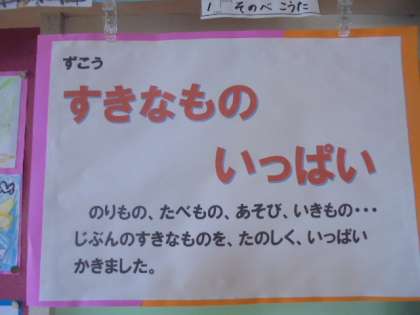 1 そのべ こうた
ずこう
すきなもの
いっぱい
のりもの、たべもの、あそび、いきもの・・・
じぶんのすきなものを、たのしく、いっぱい
かきました。